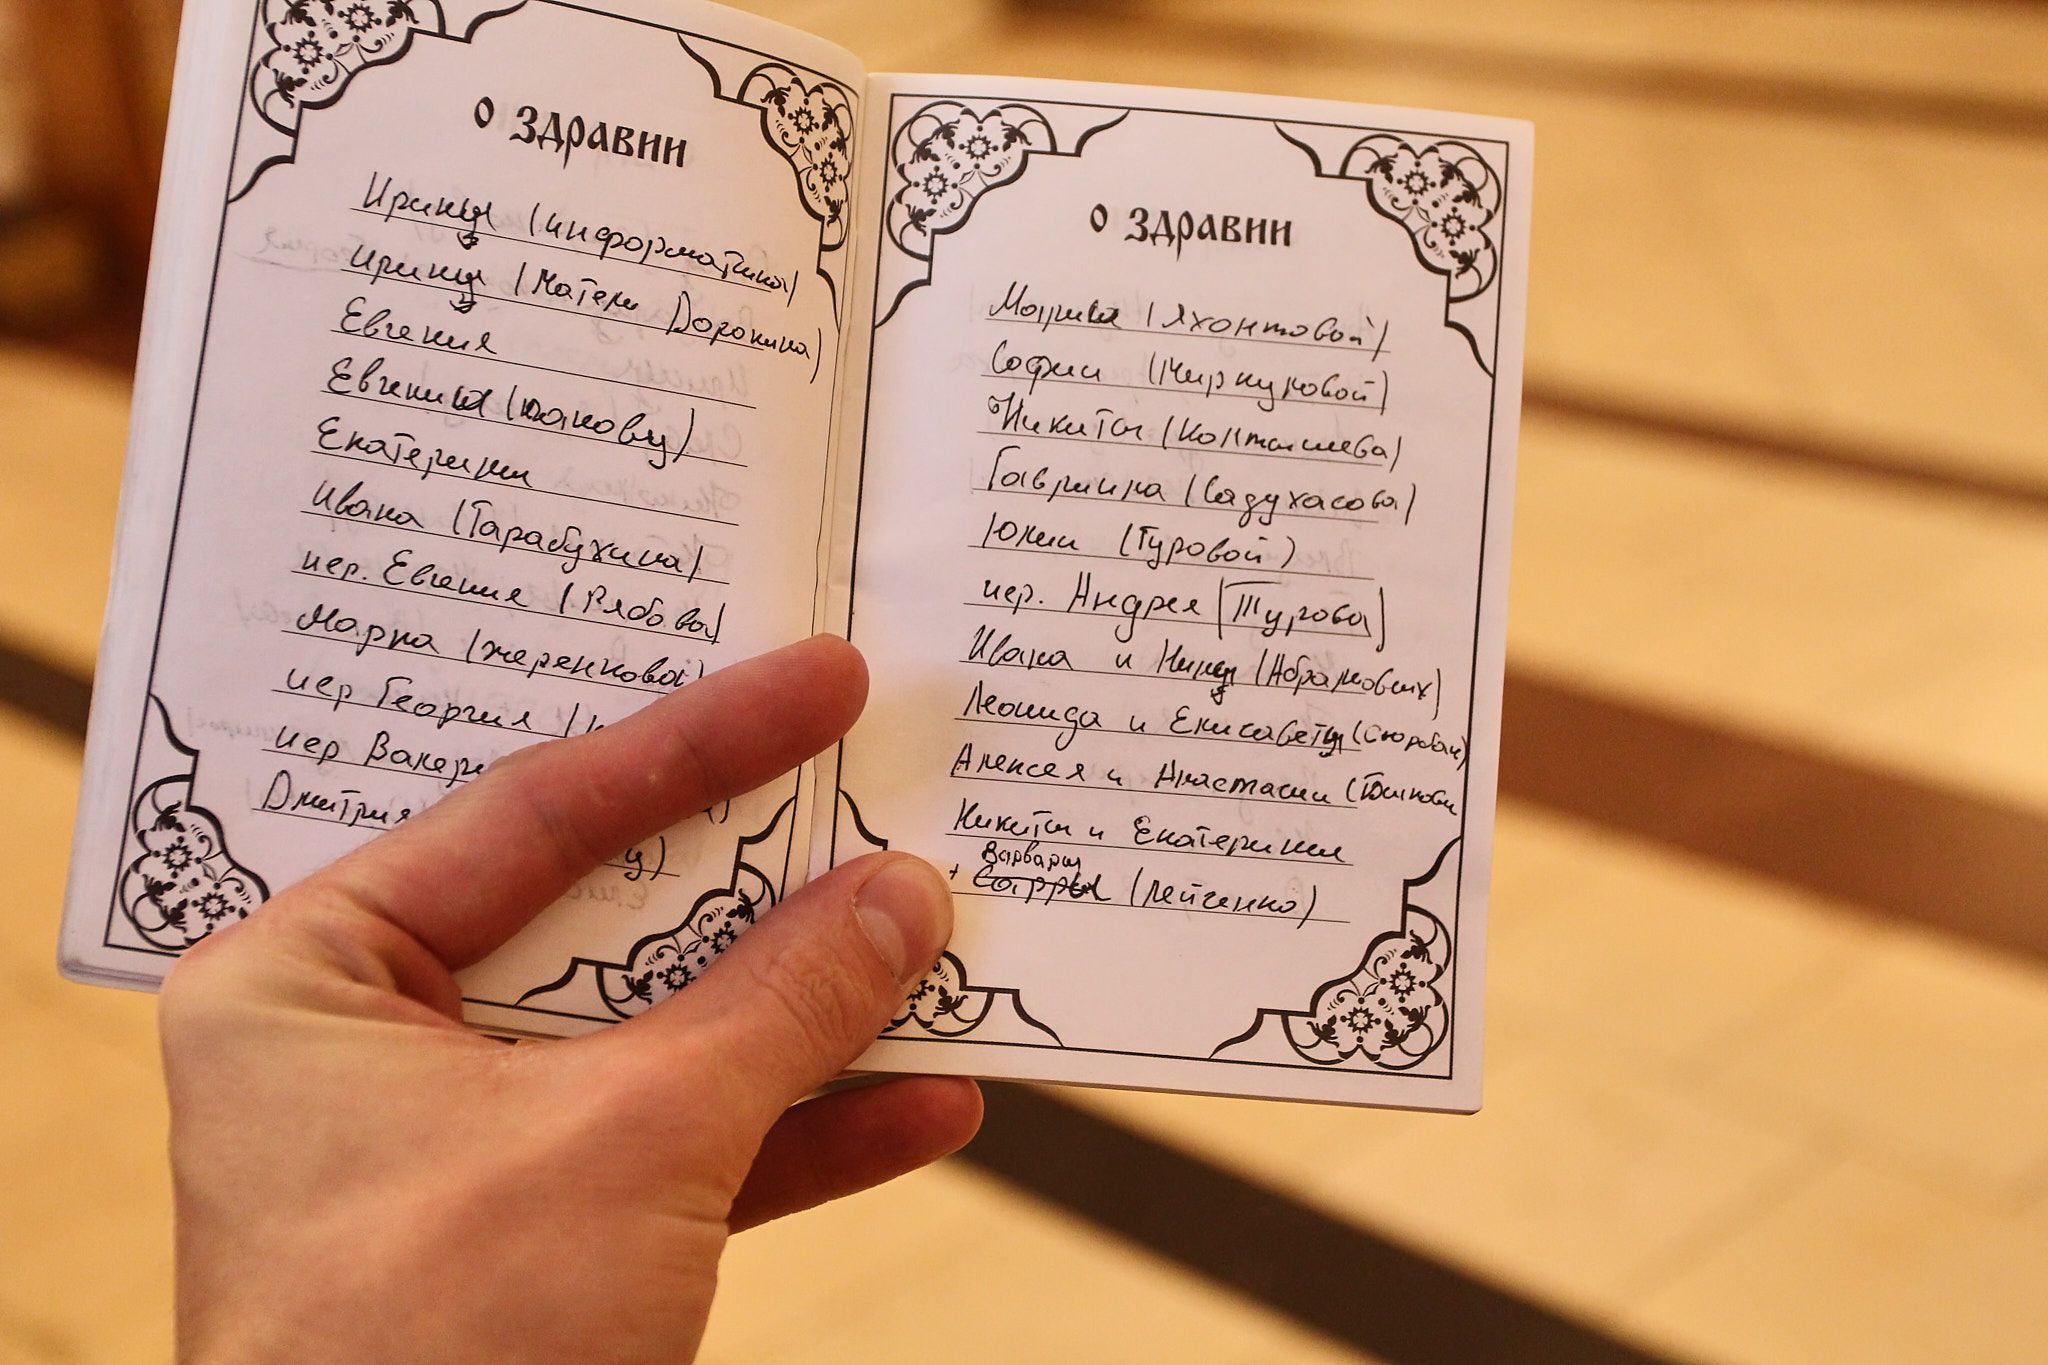 о здравии
Ирины (информатика)
Ирины (Матери Доронина)
Евгения
Евгении (
Екатерины
Ивана (Тарабухина)
иер. Евгения (Рябова)
Марка (жеренковой)
иер Георгия (
иер Валери
Дмитрия
у)
о здравии
Марии (Яхонтовой)
Софии (Миркуловой)
Никиты (
Гавриила (Садухасова)
Юлии (Туровой)
иер. Андрея (Турова)
Ивана и Нины (Абрамовых)
Леонида и Елисаветы (
Алексея и Анастасии (
Никиты и Екатерины
Варвары
+ Сарры (Лейченко)